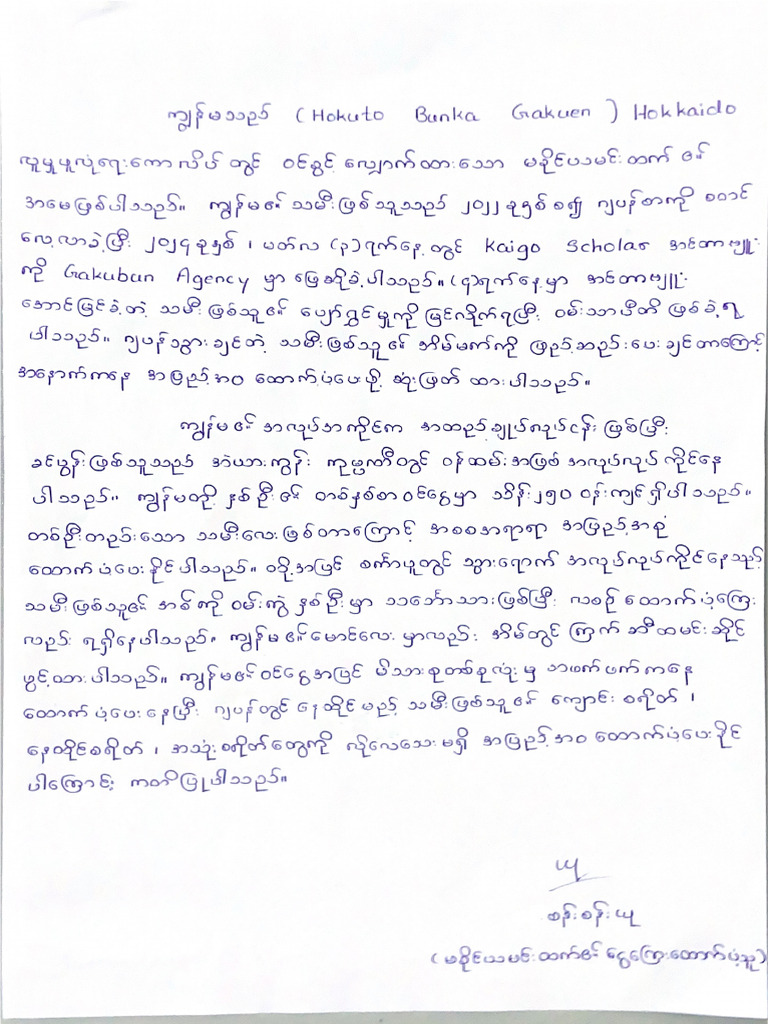 ကျွန်မသည် (Hokuto Bunka Gakuen) Hokkaido
လူမှုဖူလုံရေးကောလိပ် တွင် ဝင်ခွင့် လျှောက်ထားသော မခိုင်ယမင်းထက် ၏
အမေဖြစ်ပါသည်။ ကျွန်မ၏ သမီးဖြစ်သူသည် ၂၀၂၂ ခုနှစ် စ၍ ဂျပန်စာကို စတင်
လေ့လာခဲ့ပြီး ၂၀၂၄ ခုနှစ် ၊ မတ်လ (၃)ရက်နေ့ တွင် Kaigo Scholar အင်တာဗျူး
ကို Gakubun Agency မှာ ဖြေဆိုခဲ့ပါသည်။ (၄)ရက်နေ့မှာ အင်တာဗျူး
အောင်မြင်ခဲ့တဲ့ သမီးဖြစ်သူ၏ ပျော်ရွှင်မှုကို မြင်လိုက်ရပြီး ဝမ်းသာပီတိ ဖြစ်ခဲ့ရ
ပါသည်။ ဂျပန်သွားချင်တဲ့ သမီးဖြစ်သူ၏ အိမ်မက်ကို ဖြည့်ဆည်းပေးချင်တာကြောင့်
အနောက်ကနေ အပြည့်အဝ ထောက်ပံ့ပေးဖို့ ဆုံးဖြတ် ထားပါသည်။
ကျွန်မ၏ အလုပ်အကိုင်က အထည်ချုပ်လုပ်ငန်း ဖြစ်ပြီး
ခင်ပွန်းဖြစ်သူသည် အဲယားကွန်း ကုမ္ပဏီတွင် ဝန်ထမ်းအဖြစ် အလုပ်လုပ်ကိုင်နေ
ပါသည်။ ကျွန်မတို့ နှစ်ဦး၏ တစ်နှစ်စာ ဝင်ငွေမှာ သိန်း၂၅၀ ဝန်းကျင် ရှိပါသည်။
တစ်ဦးတည်းသော သမီးလေး ဖြစ်တာကြောင့် အစစအရာရာ အပြည့်အစုံ
ထောက်ပံ့ပေးနိုင်ပါသည်။ ထို့အပြင် စင်္ကာပူတွင် သွားရောက် အလုပ်လုပ်ကိုင်နေသည့်
သမီးဖြစ်သူ၏ အစ်ကို ဝမ်းကွဲ နှစ်ဦးမှာ သင်္ဘောသားဖြစ်ပြီး လစဉ် ထောက်ပံ့ကြေး
လည်း ရရှိနေပါသည်။ ကျွန်မ၏မောင်လေး မှာလည်း အိမ်တွင် ကြက်ဆီထမင်းဆိုင်
ဖွင့်ထားပါသည်။ ကျွန်မ၏ဝင်ငွေအပြင် မိသားစုတစ်စုလုံး မှ ဘဖက်ဖက်ကနေ
ထောက်ပံ့ပေးနေပြီး ဂျပန်တွင် နေထိုင်မည့် သမီးဖြစ်သူ၏ ကျောင်းစရိတ် ၊
နေထိုင်စရိတ် ၊ အသုံးစရိတ်တွေကို လိုလေသေးမရှိ အပြည့်အဝ ထောက်ပံ့ပေးနိုင်
ပါကြောင်း ကတိပြုပါသည်။
ယု
စန်းစန်းယု
(မခိုင်ယမင်းထက်၏ ငွေကြေးထောက်ပံ့သူ)